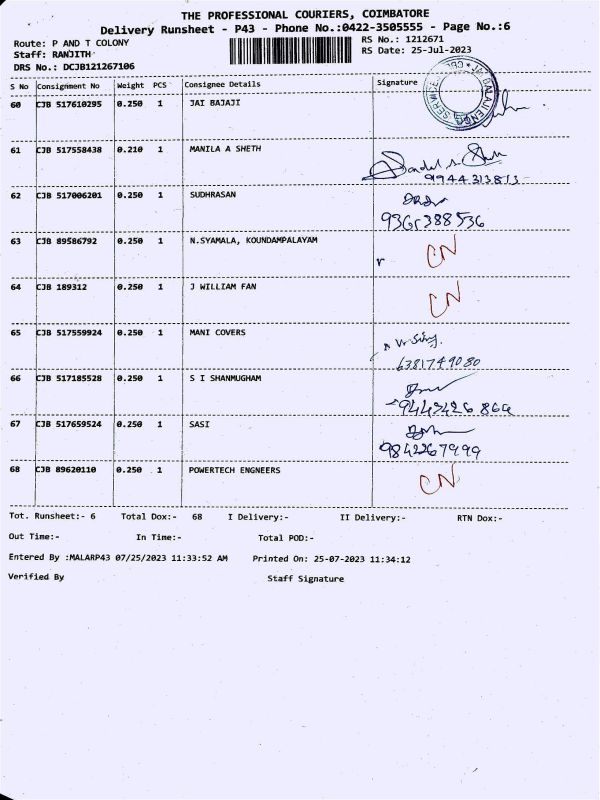 THE PROFESSIONAL COURIERS, COIMBATORE
Delivery Runsheet - P43 - Phone No.:0422-3505555 - Page No.:6
Route: P AND T COLONY
RS No.: 1212671
Staff: RANJITH
RS Date: 25-Jul-2023
DRS No.: DCJB121267106
S No Consignment No Weight PCS Consignee Details Signature
60 CJB 517610295 0.250 1 JAI BAJAJI
61 CJB 517558438 0.210 1 MANILA A SHETH
9944313813
62 CJB 517006201 0.250 1 SUDHRASAN
63 CJB 89586792 0.250 1 N.SYAMALA, KOUNDAMPALAYAM CN
64 CJB 189312 0.250 1 J WILLIAM FAN CN
65 CJB 517559924 0.250 1 MANI COVERS
6381749080
66 CJB 517185528 0.250 1 S I SHANMUGHAM
67 CJB 517659524 0.250 1 SASI
9842267999
68 CJB 89620110 0.250 1 POWERTECH ENGNEERS CN
Tot. Runsheet:- 6 Total Dox:- 68 I Delivery:- II Delivery:- RTN Dox:-
Out Time:- In Time:- Total POD:-
Entered By :MALARP43 07/25/2023 11:33:52 AM Printed On: 25-07-2023 11:34:12
Verified By Staff Signature